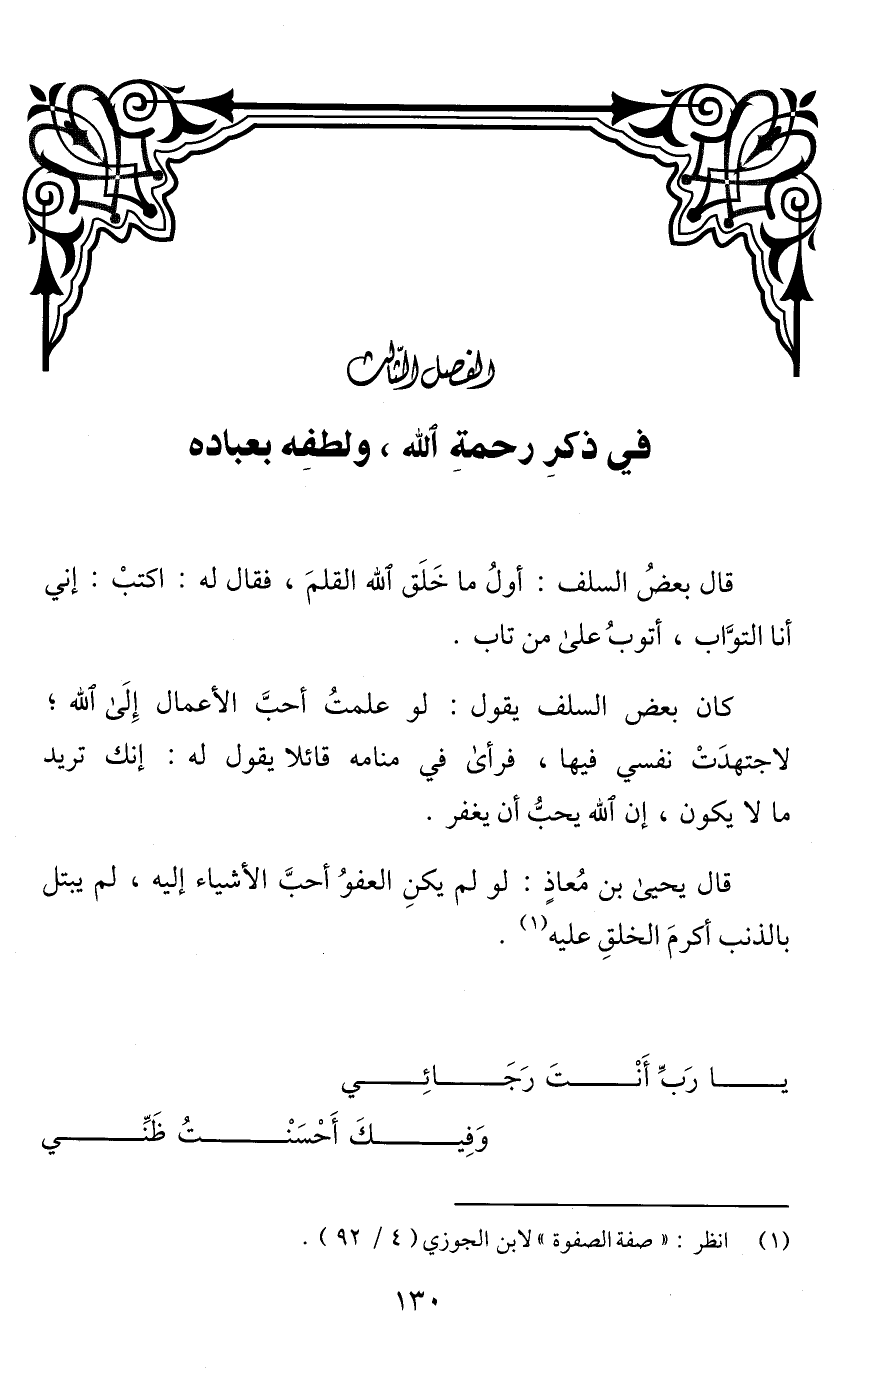 الفصل الثّالث
في ذكرِ رحمةِ ٱلله ، ولطفِه بعباده
قال بعضُ السلف : أولُ ما خَلَق ٱلله القلمَ ، فقال له : اكتبْ : إني
أنا التوَّاب ، أتوبُ علىٰ من تاب .
كان بعض السلف يقول : لو علمتُ أحبَّ الأعمال إِلَىٰ ٱلله ؛
لاجتهدَتْ نفسي فيها ، فرأىٰ في منامه قائلا يقول له : إنك تريد
ما لا يكون ، إن ٱلله يحبُّ أن يغفر .
قال يحيىٰ بن مُعاذٍ : لو لم يكنِ العفوُ أحبَّ الأشياء إليه ، لم يبتل
بالذنب أكرمَ الخلقِ عليه(١) .
يـــا رَبِّ أَنْـــتَ رَجَـــائِـــي
وَفِيـــكَ أَحْسَنْـــتُ ظَنِّـــي
(١) انظر : « صفة الصفوة » لابن الجوزي ( ٤ / ٩٢ ) .
١٣٠